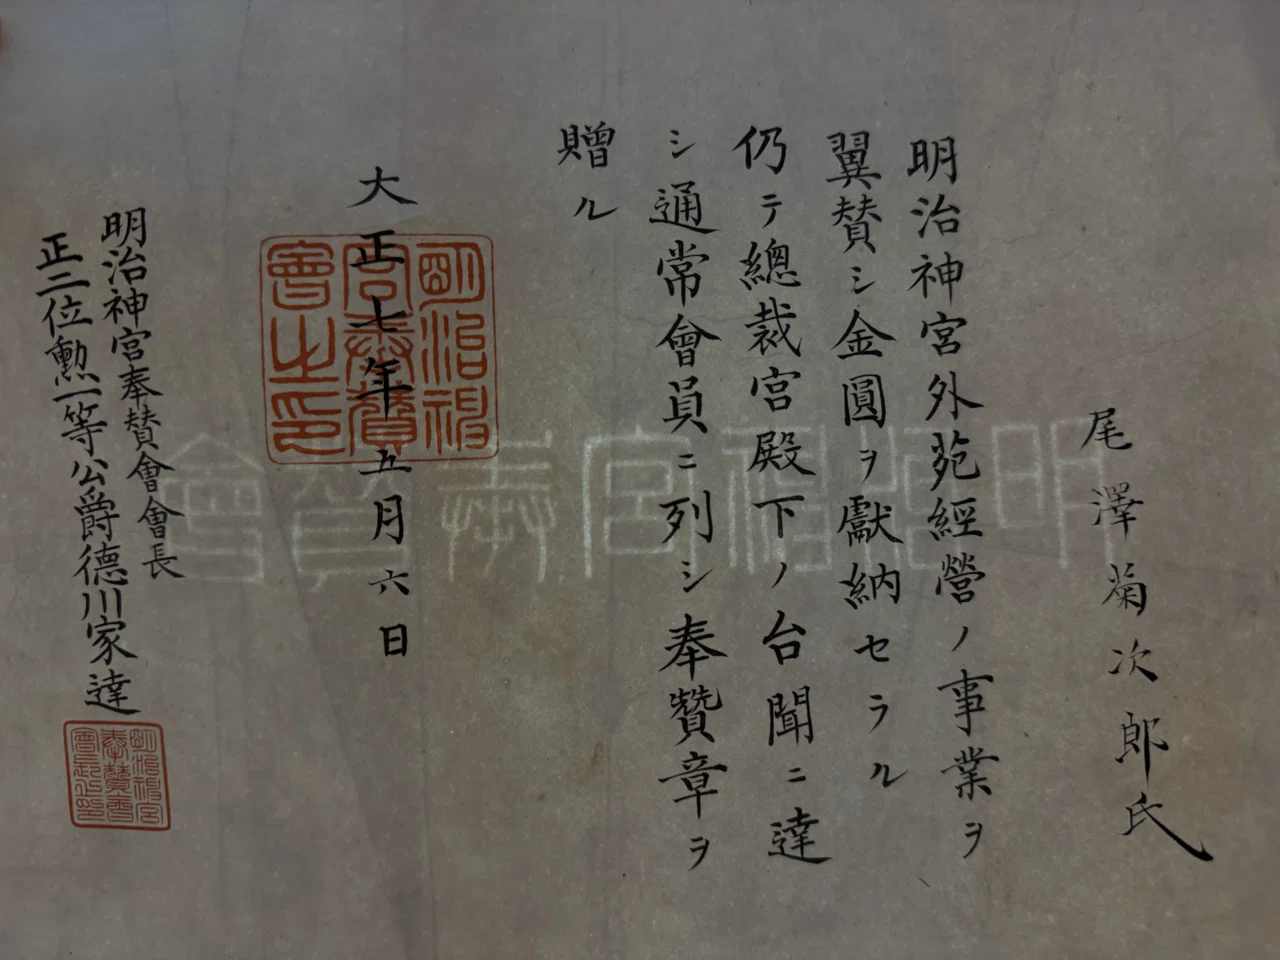 尾澤菊次郎氏
明治神宮外苑經營ノ事業ヲ
翼賛シ金圓ヲ獻納セラル
仍テ總裁宮殿下ノ台聞ニ達
シ通常會員ニ列シ奉贊章ヲ
贈ル
大正七年五月六日
明治神宮奉賛會會長
正二位勲一等公爵德川家達
明治神宮奉賛會之印
明治神宮奉賛會會長之印
明治神宮奉賛會